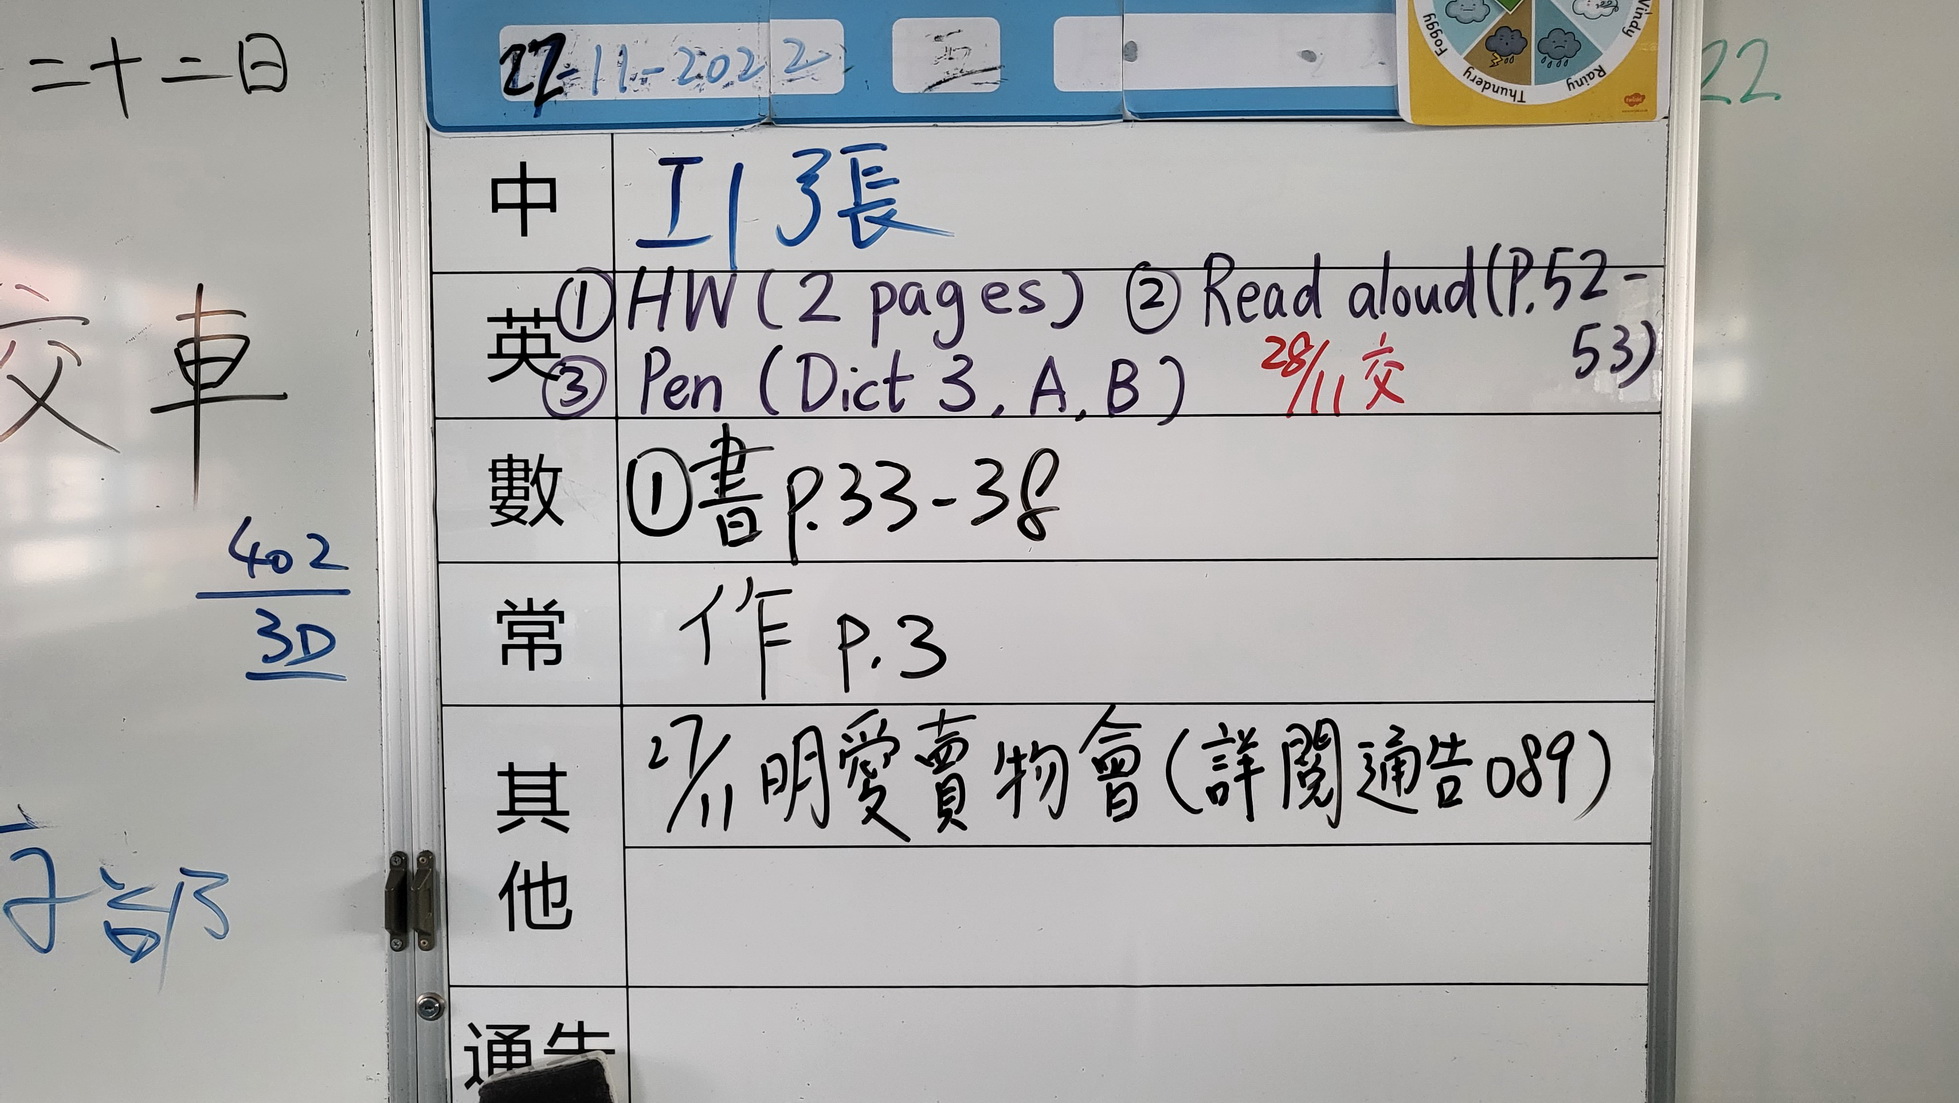 二十二日
交車
402
3D
部
22-11-2022 二
Foggy
Thundery
Rainy
Windy
22
中 工1 3張
英 ①HW(2 pages) ②Read aloud(P.52-
53)
③ Pen (Dict 3, A, B) 28/11交
數 ①書p.33-38
常 作 p.3
其他 27/11明愛賣物會(詳閱通告089)
通告